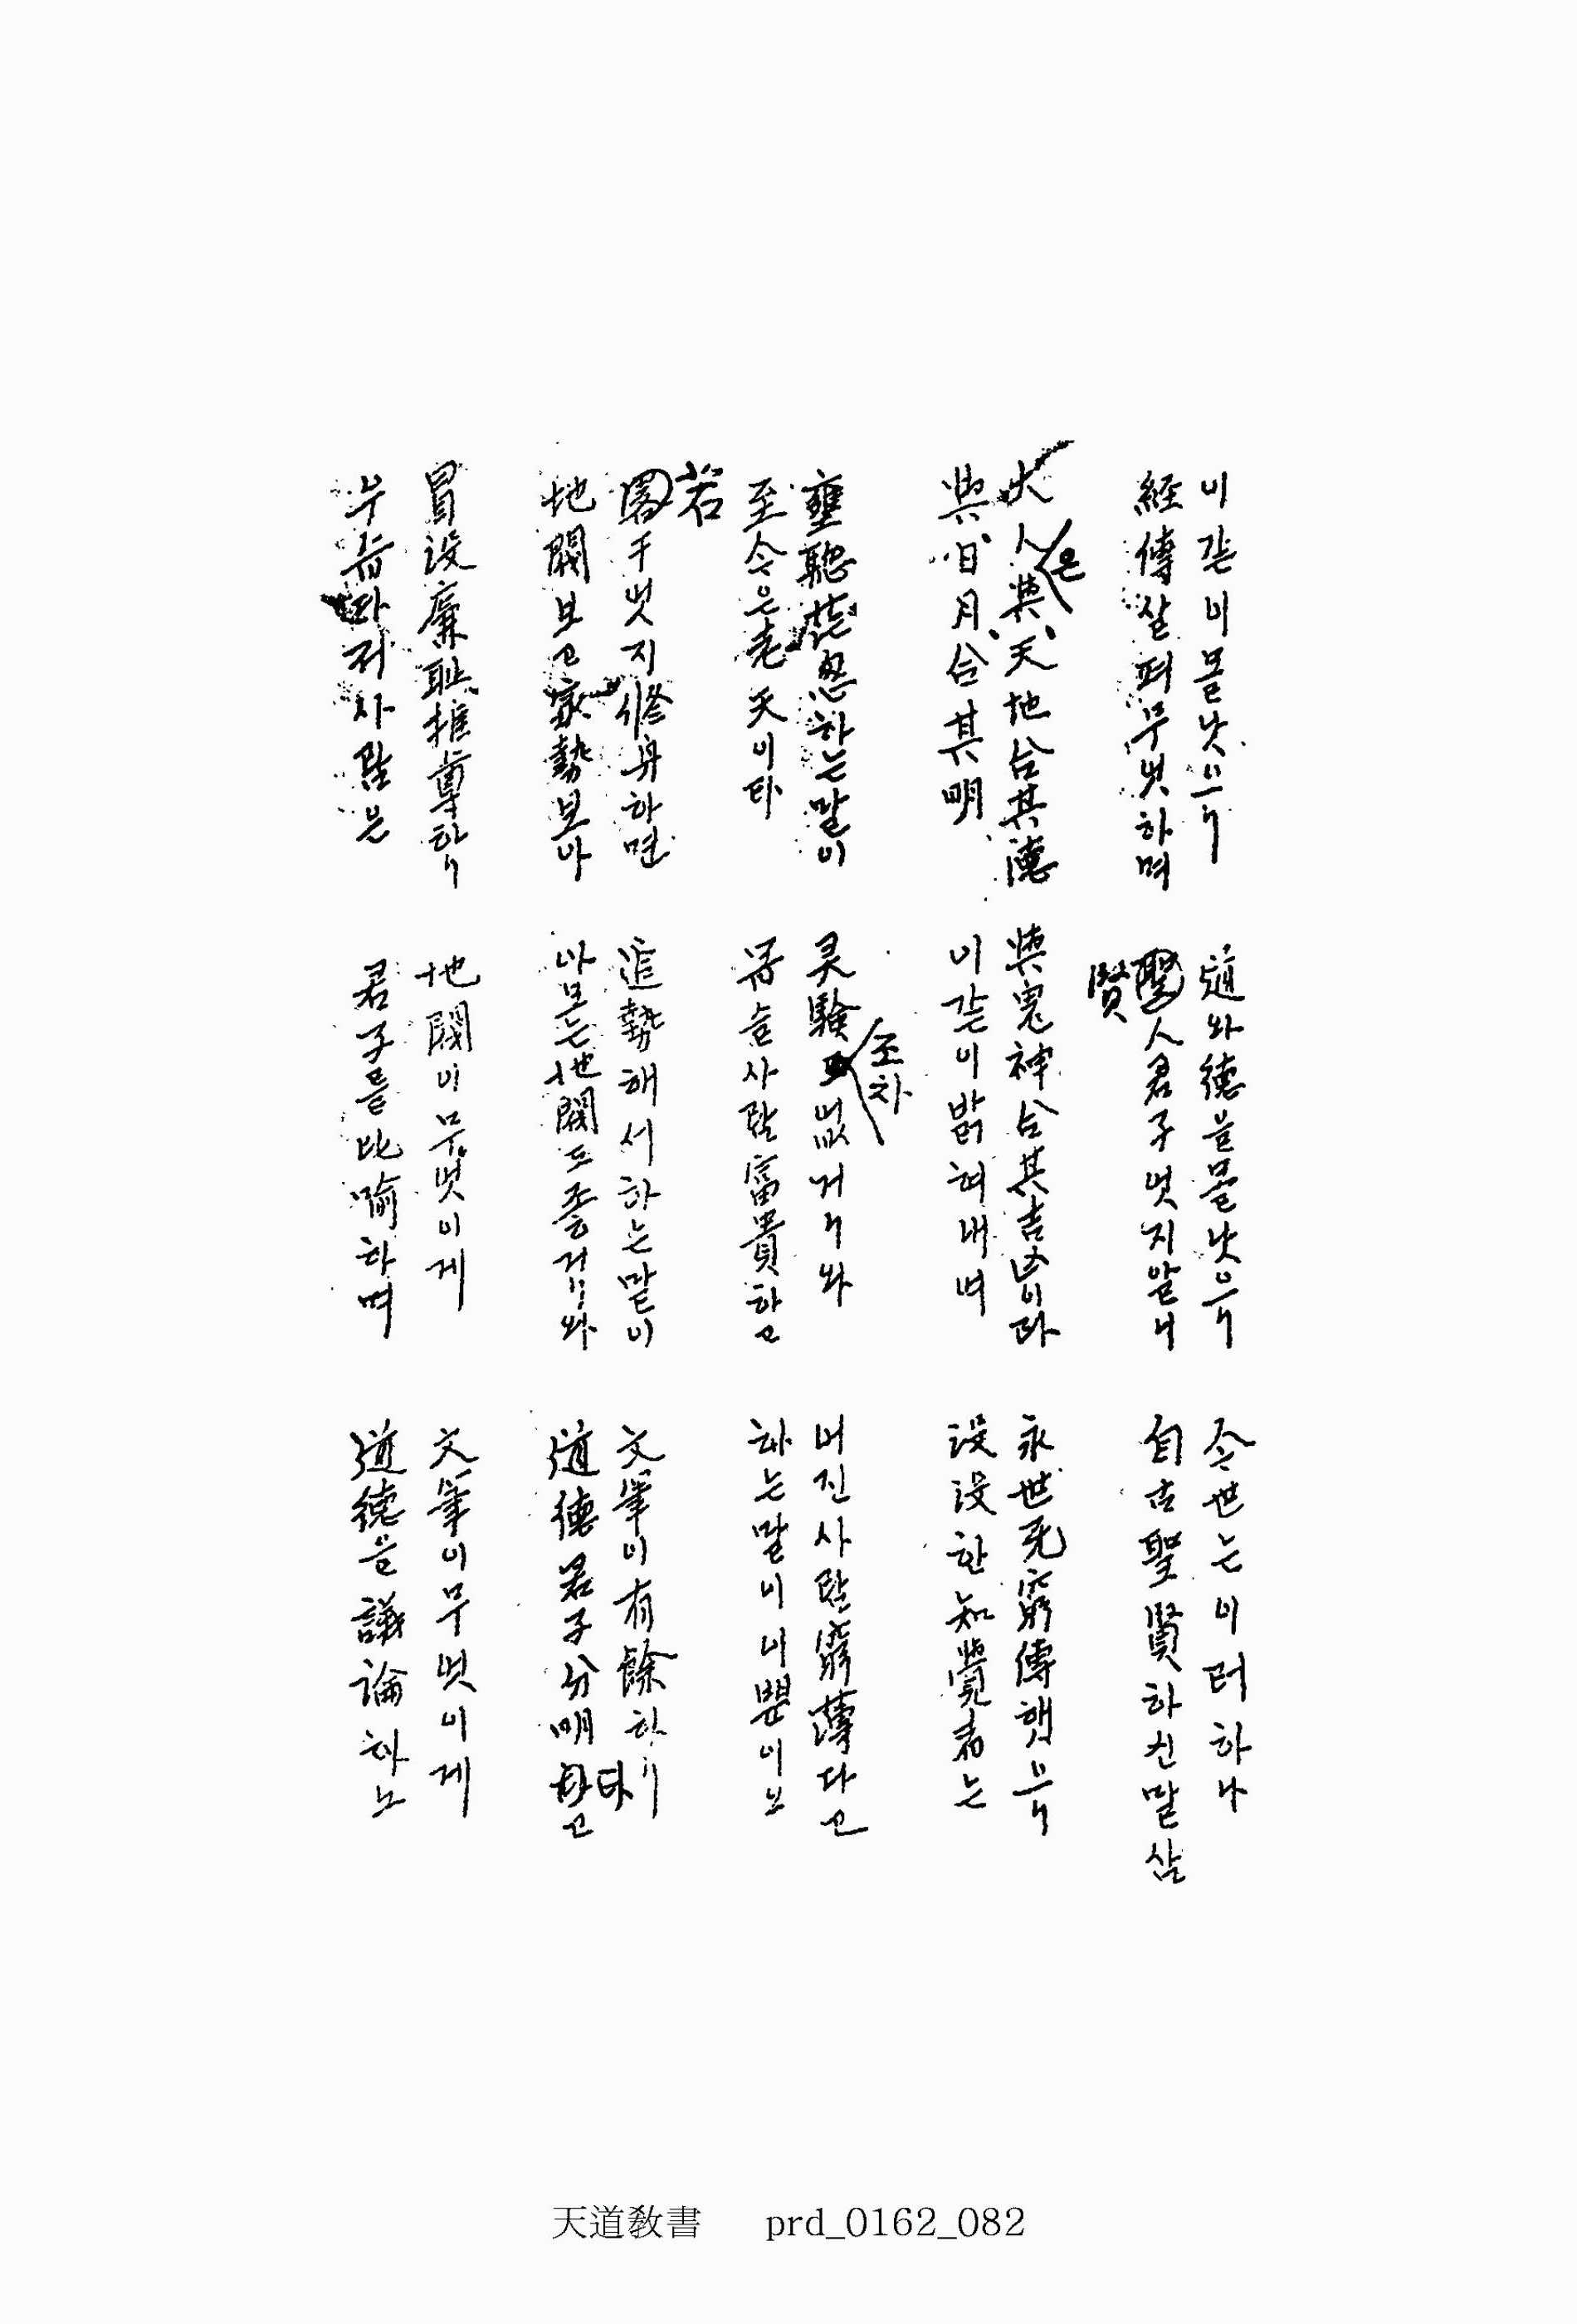 이같이몰낫으니
經傳살펴무엇하며
道와德을몰낫으니
賢人君子엇지알니
今世는이러하나
自古聖賢하신말삼
大人은與天地合其德
與日月合其明
與鬼神合其吉凶이라
이같이밝혀내여
永世无窮傳햇으니
没没한知覺者는
壅聡茫忽하는말이
至今은老天이라
灵驗조차없거니와
몹슬사람富貴하고
어진사람窮薄다고
하는말이이뿐이오
若干엇지修身하면
地閥보고家勢보아
追勢해서하는말이
아모는地閥도좋거니와
文筆이有餘하니
道德君子分明타고
冒没廉耻推尊하니
우습따저사람은
地閥이무엇이게
君子를比喻하며
文筆이무엇이게
道德을議論하노
天道敎書 prd_0162_082